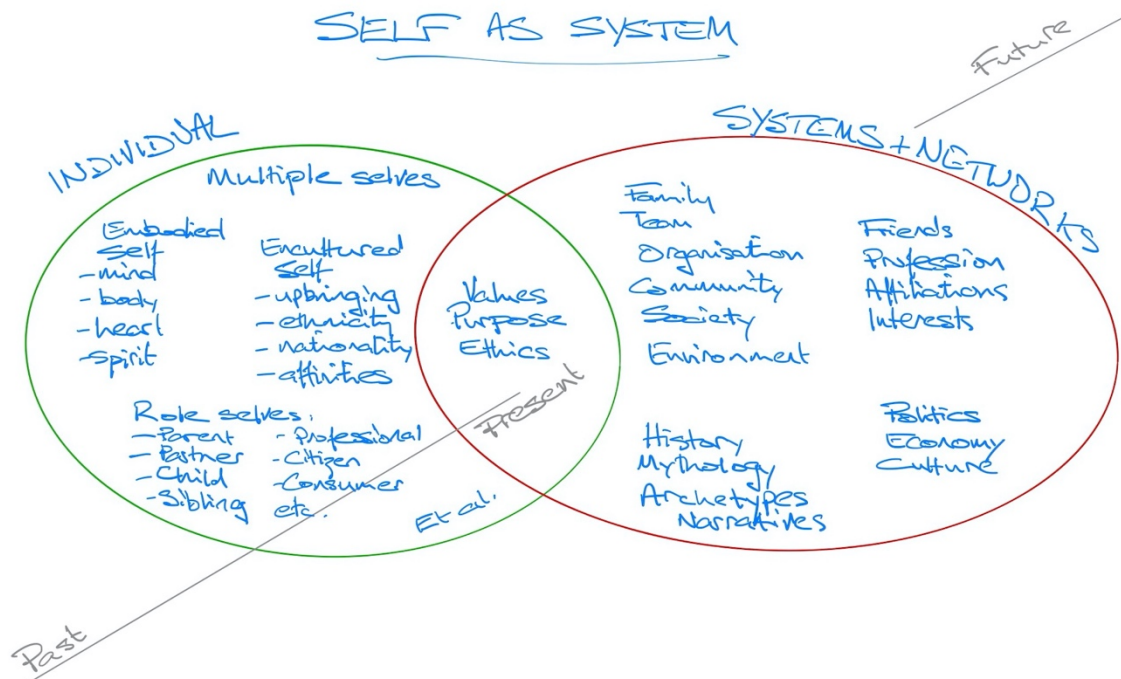 SELF AS SYSTEM
Future
INDIVIDUAL
SYSTEMS + NETWORKS
Multiple selves
Embodied
Self
- mind
- body
- heart
- spirit
Encultured
Self
- upbringing
- ethnicity
- nationality
- affinities
Role selves.
- Parent
- Partner
- Child
- Sibling
- Professional
- Citizen
- Consumer
etc.
Et al.
Values
Purpose
Ethics
Present
Family
Team
Organisation
Community
Society
Environment
Friends
Profession
Affiliations
Interests
History
Mythology
Archetypes
Narratives
Politics
Economy
Culture
Past